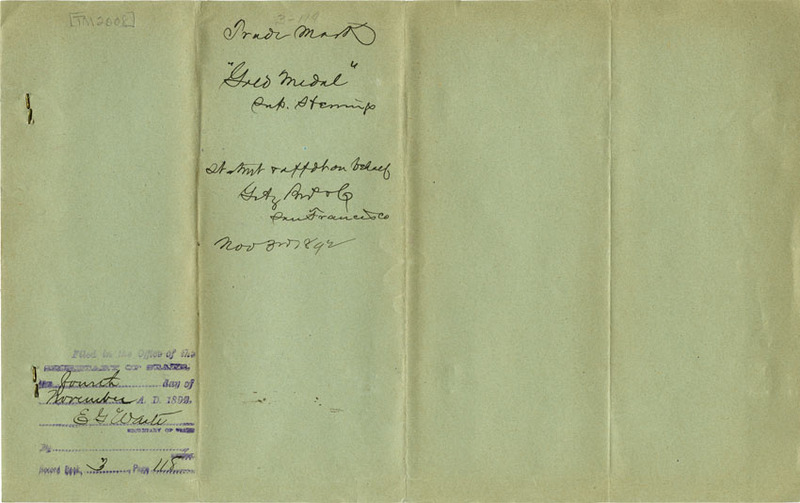 [TM2608]
3-119
Trade Mark
"Gold Medal"
St-tmt & affdt on behalf
Getz Bros & Co
San Francisco
Nov 3rd 1892
Filed in the Office of the
SECRETARY OF STATE,
the fourth day of
November A. D. 1892.
E G Waite
SECRETARY OF STATE
By
Record Book, 3 Page 118